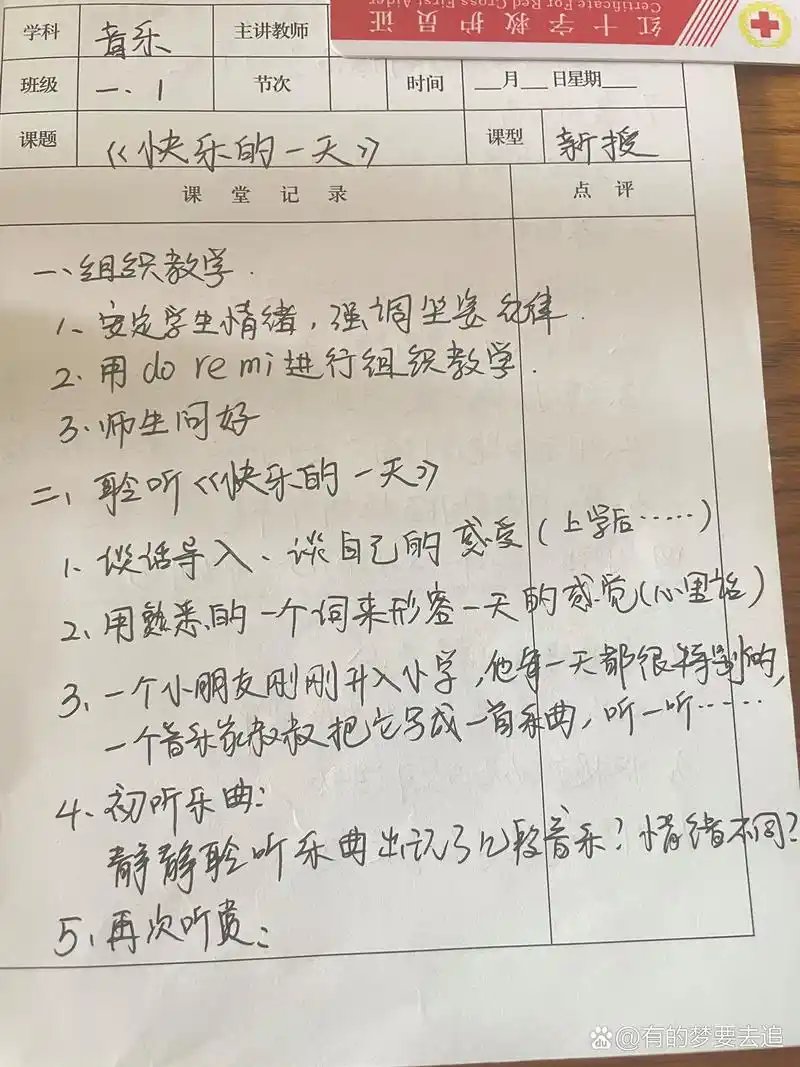 红十字救护员证
Certificate For Red Cross First Aider
学科 音乐 主讲教师
班级 一、1 节次 时间 __月__日星期__
课题 《快乐的一天》 课型 新授
课堂记录 点评
一、组织教学.
1、安定学生情绪，强调坐姿纪律.
2、用do re mi进行组织教学.
3、师生问好
二、聆听《快乐的一天》
1、谈话导入、谈自己的感受(上学后……)
2、用熟悉的一个词来形容一天的感觉(心里话)
3、一个小朋友刚刚升入小学,他每一天都很特别的,
一个音乐家叔叔把它写成一首乐曲，听一听……
4、初听乐曲:
静静聆听乐曲出现了几段音乐？情绪不同？
5、再次听赏:
@有的梦要去追